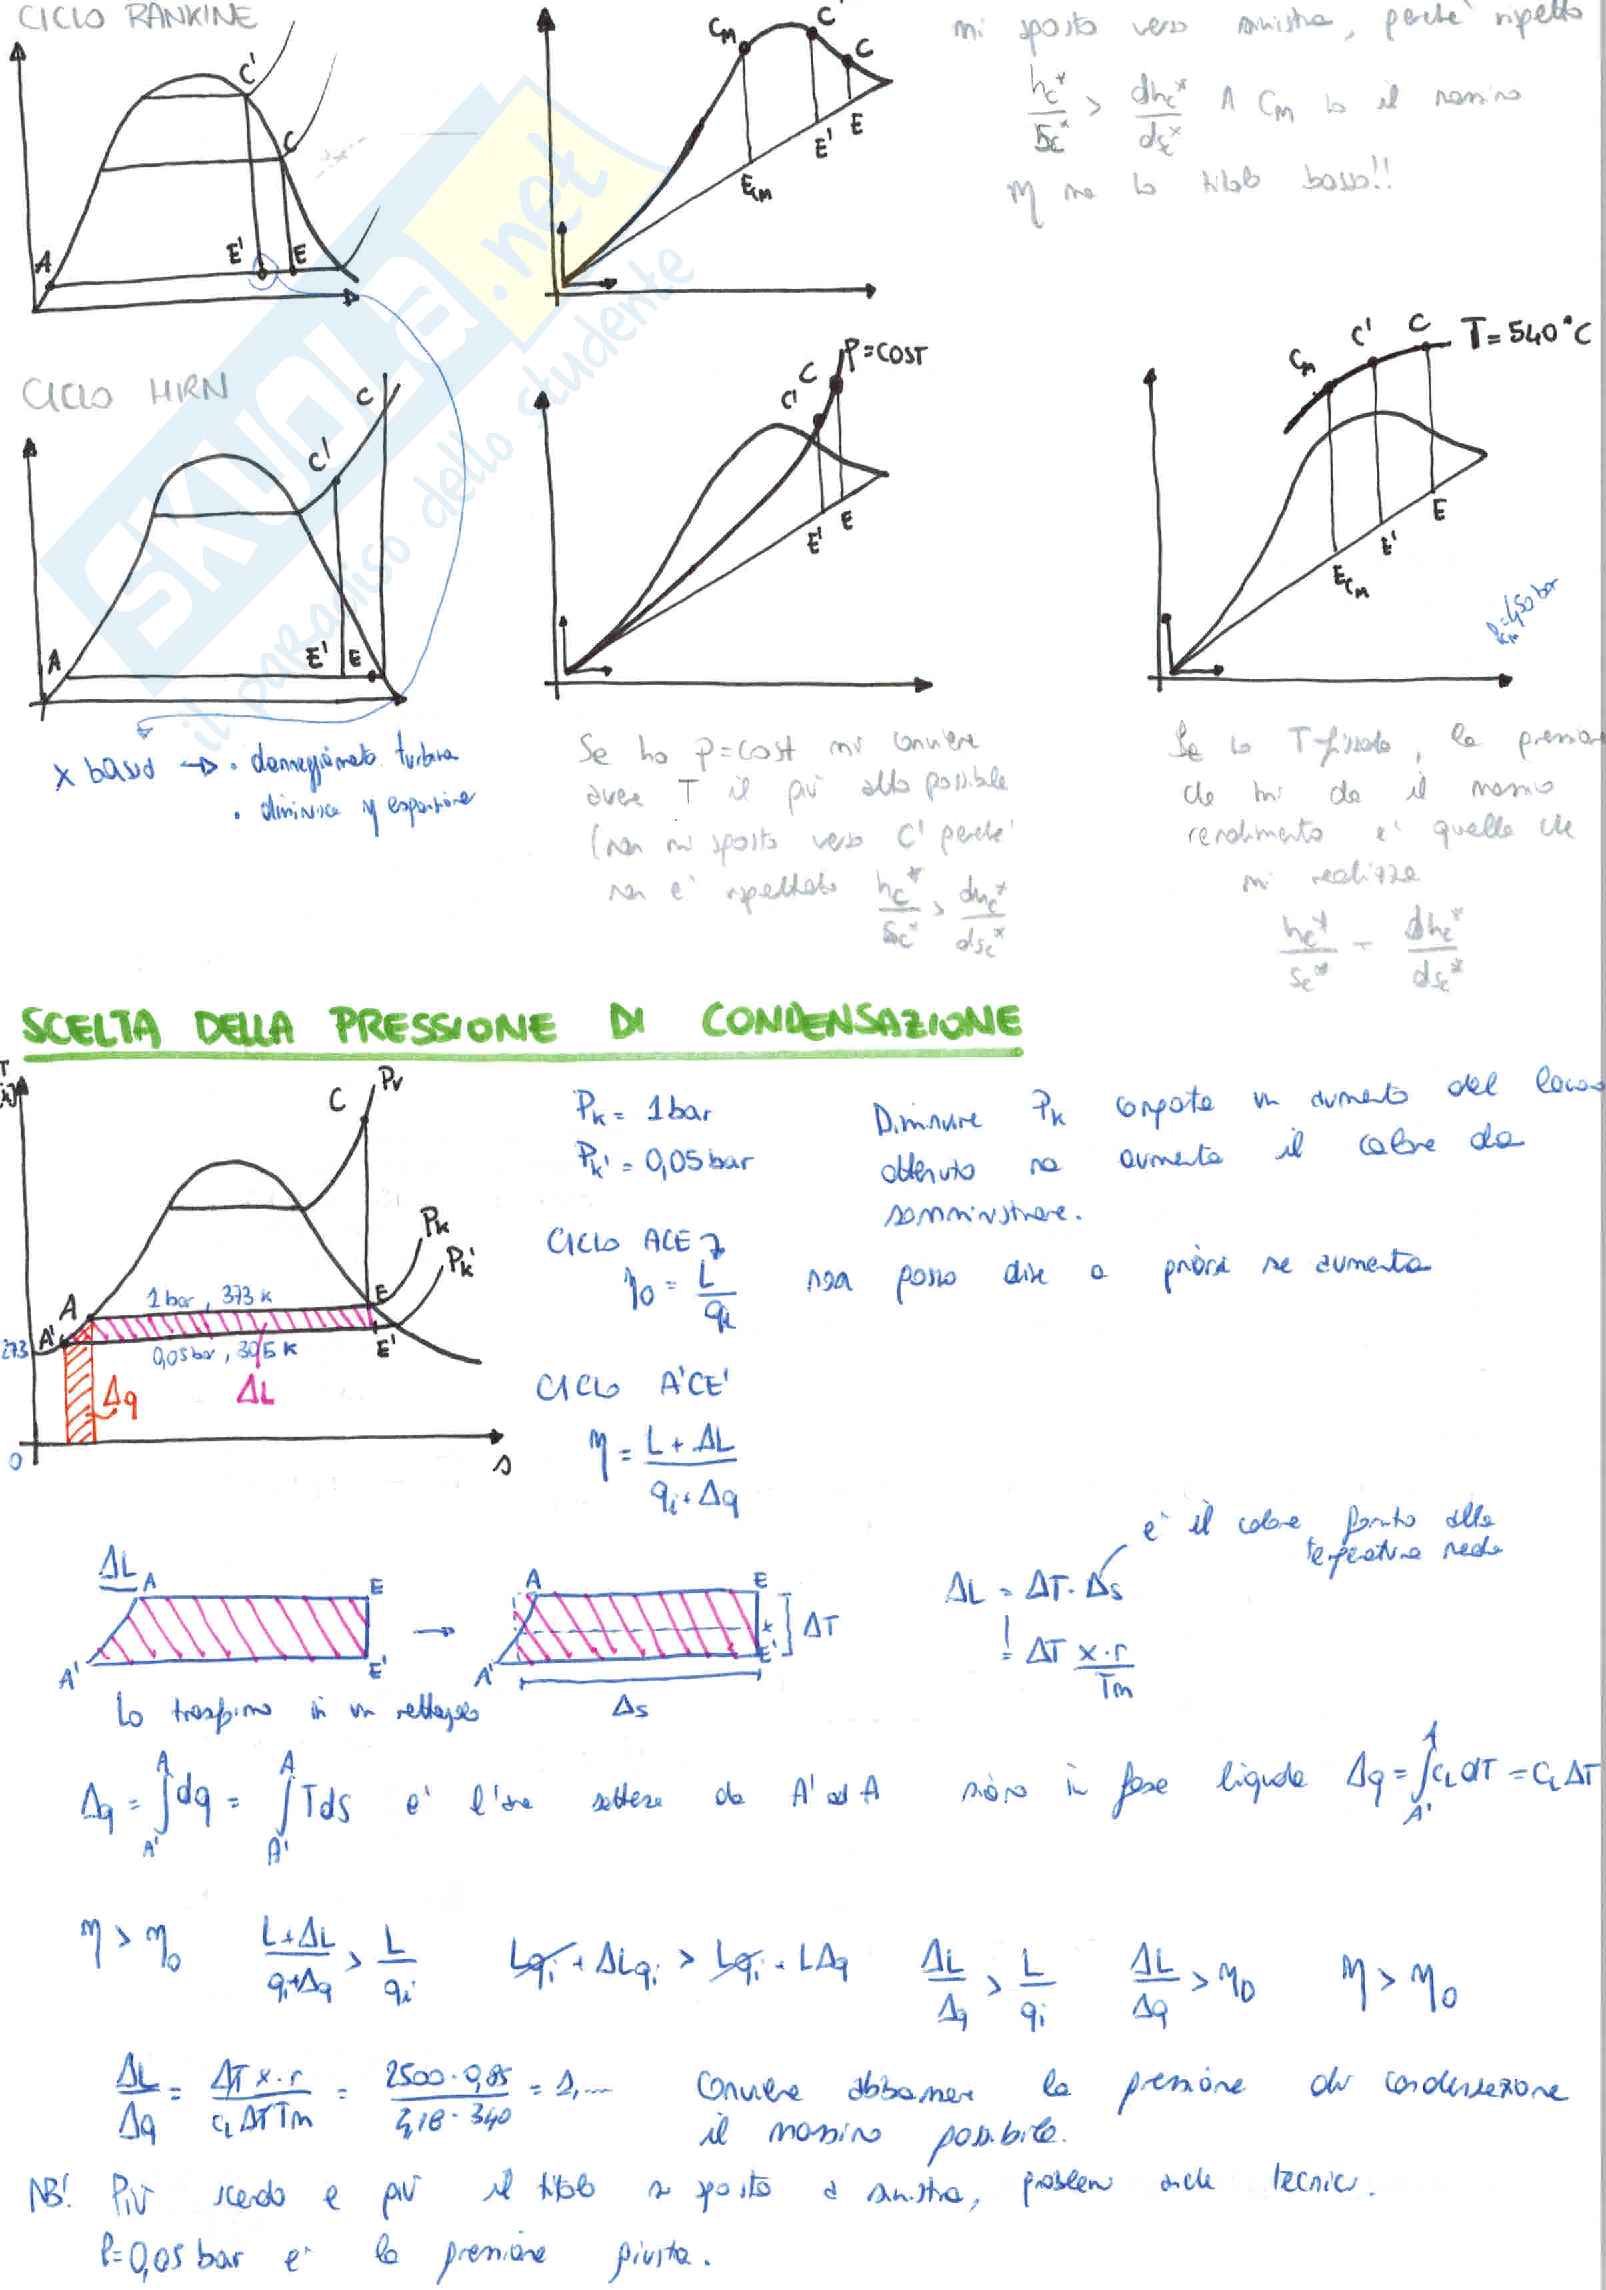 CICLO RANKINE
C'
C
A
E'
E
C_M
C'
C
E_CM
E'
E
mi sposto verso sinistra, perché rispetto
h_c*/s_c* > dh_c*/ds_c* A C_M ho il massimo
η ma ho titolo basso!!
SKUOLA.net
il paradiso dello studente
CICLO HIRN
C
C'
A
E'
E
P=COST
C
C'
E'
E
T=540°C
C_M
C'
C
E_CM
E'
E
x basso → • danneggiamento turbina
• diminisce η espansione
Se ho p=cost mi conviene
avere T il più alta possibile
(non mi sposto verso C' perché
non è rispettato h_c*/s_c* > dh_c*/ds_c*
Se ho T fissata, la pressione
che mi da il massimo
rendimento e' quella che
mi realizza
h_c*/s_c* = dh_c*/ds_c*
SCELTA DELLA PRESSIONE DI CONDENSAZIONE
T
C
P_v
P_k
P_k'
A
A'
E
E'
1 bar, 373 K
0,05 bar, 305 K
273
Δq
ΔL
0
s
P_k = 1 bar
P_k' = 0,05 bar
Diminuire P_k comporta un aumento del lavoro
ottenuto ma aumenta il calore da
somministrare.
CICLO ACE
η_0 = L/q_i non posso dire a priori se aumenta
CICLO A'CE'
η = (L + ΔL)/(q_i + Δq)
ΔL
A
E
A'
E'
→
A
E
A'
E'
ΔT
x
Δs
Lo trasformo in un rettangolo
ΔL = ΔT · Δs
è il calore fornito alla
temperatura media
= ΔT x·r/Tm
Δq = ∫_A'^A dq = ∫_A'^A Tds e' l'area sottesa da A' ad A siamo in fase liquida Δq = ∫_A'^A c_L dT = c_L ΔT
η > η_0 (L+ΔL)/(q_i+Δq) > L/q_i Lq_i + ΔLq_i > Lq_i + LΔq ΔL/Δq > L/q_i ΔL/Δq > η_0 η > η_0
ΔL/Δq = ΔT x·r/(c_L ΔT Tm) = 2500·0,85/(4,18·340) = 1,... Conviene abbassare la pressione di condensazione
il massimo possibile.
NB! Più scendo e più il titolo si sposta a sinistra, problemi anche tecnici.
P=0,05 bar e' la pressione giusta.